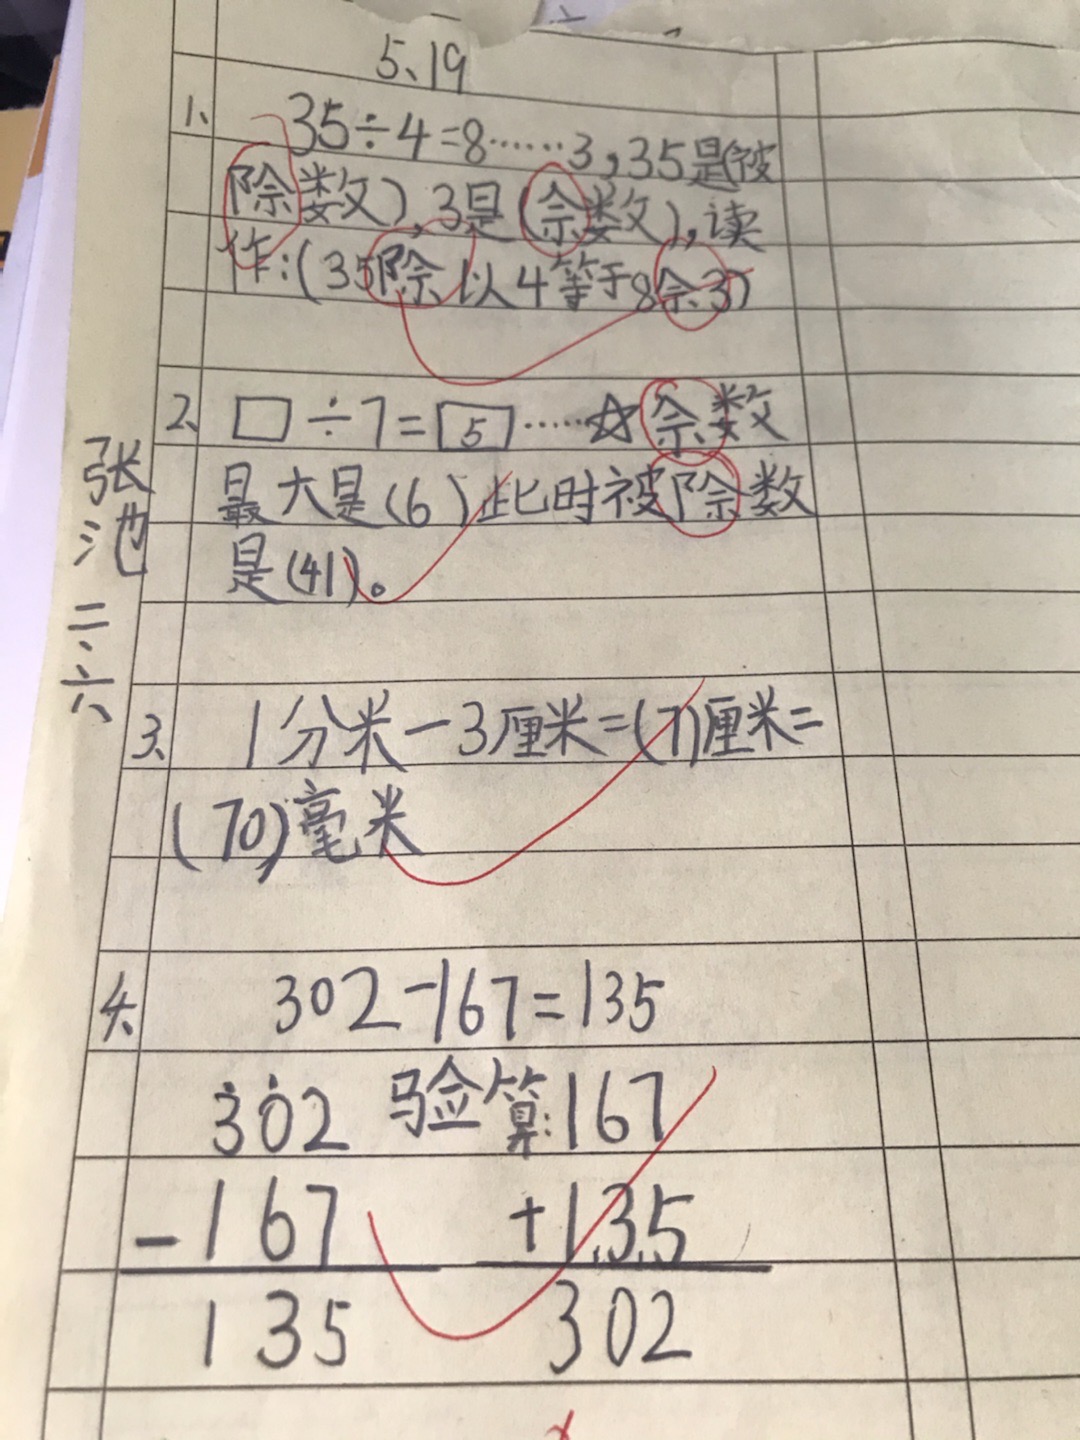 5、19
1、 35÷4=8……3,35是被
除数),3是(余数),读
作:(35除以4等于8余3)
2、 □÷7=5……☆余数
最大是(6)此时被除数
是(41)。
张池 二.六
3、 1分米-3厘米=(7)厘米=
(70)毫米
4、 302-167=135
302 验算:167
-167 +135
135 302